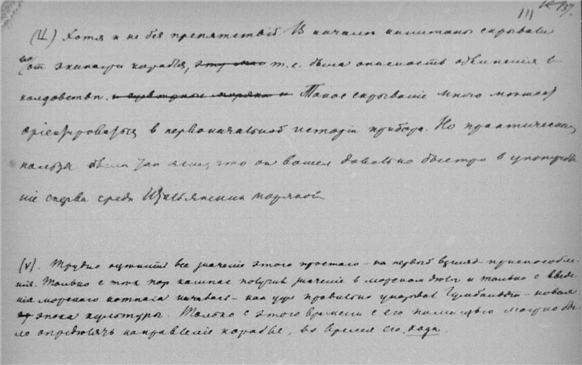 III
(4) Хотя и не без препятствій. В начале капитаны скрывали
от экипажа корабля, т.е. была опасность обвинения в
колдовстве. Такое скрываніе много мешает
в первоначальной исторіи прибора. Но практическая
польза была так ясна, что он вошел довольно быстро в употребле
ніе сперва среди моряков
(V). Трудно оценить все значеніе этого простого – на первый взгляд – приспособле
нія. Только с тех пор компас получил значеніе в морском деле и только с введе
нія морского компаса началась – как уже правильно указывал Гумбольдт – новая
эпоха культуры. Только с этого времени с его помощью можно бы
ло определять направленіе корабля, во время его хода.